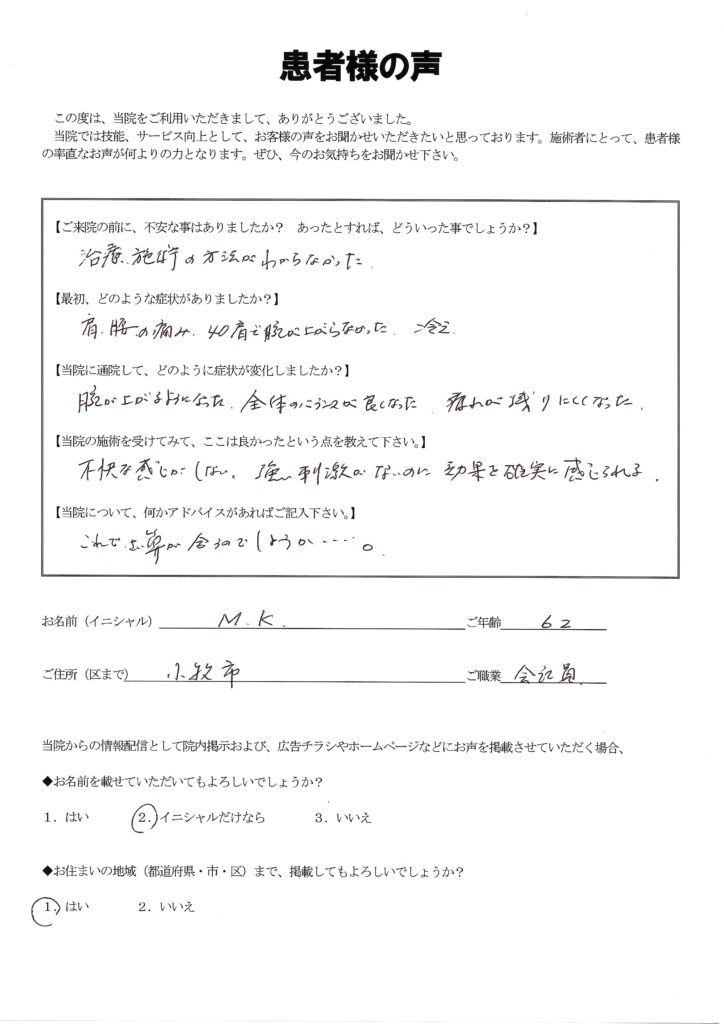 患者様の声
この度は、当院をご利用いただきまして、ありがとうございました。
当院では技能、サービス向上として、お客様の声をお聞かせいただきたいと思っております。施術者にとって、患者様
の率直なお声が何よりの力となります。ぜひ、今のお気持ちをお聞かせ下さい。
【ご来院の前に、不安な事はありましたか？　あったとすれば、どういった事でしょうか？】
治療、施術の方法がわからなかった.
【最初、どのような症状がありましたか？】
肩、腰の痛み. 40肩で腕が上がらなかった. 冷え.
【当院に通院して、どのように症状が変化しましたか？】
腕が上がるようになった. 全体のバランスが良くなった 疲れが残りにくくなった.
【当院の施術を受けてみて、ここは良かったという点を教えて下さい。】
不快な感じがしない。強い刺激がないのに効果を確実に感じられる.
【当院について、何かアドバイスがあればご記入下さい。】
これで 算が合うのでしょうか……。
お名前（イニシャル） M.K. ご年齢 62
ご住所（区まで） 小牧市 ご職業 会社員
当院からの情報配信として院内掲示および、広告チラシやホームページなどにお声を掲載させていただく場合、
◆お名前を載せていただいてもよろしいでしょうか？
１．はい　２．イニシャルだけなら　３．いいえ
◆お住まいの地域（都道府県・市・区）まで、掲載してもよろしいでしょうか？
１．はい　２．いいえ